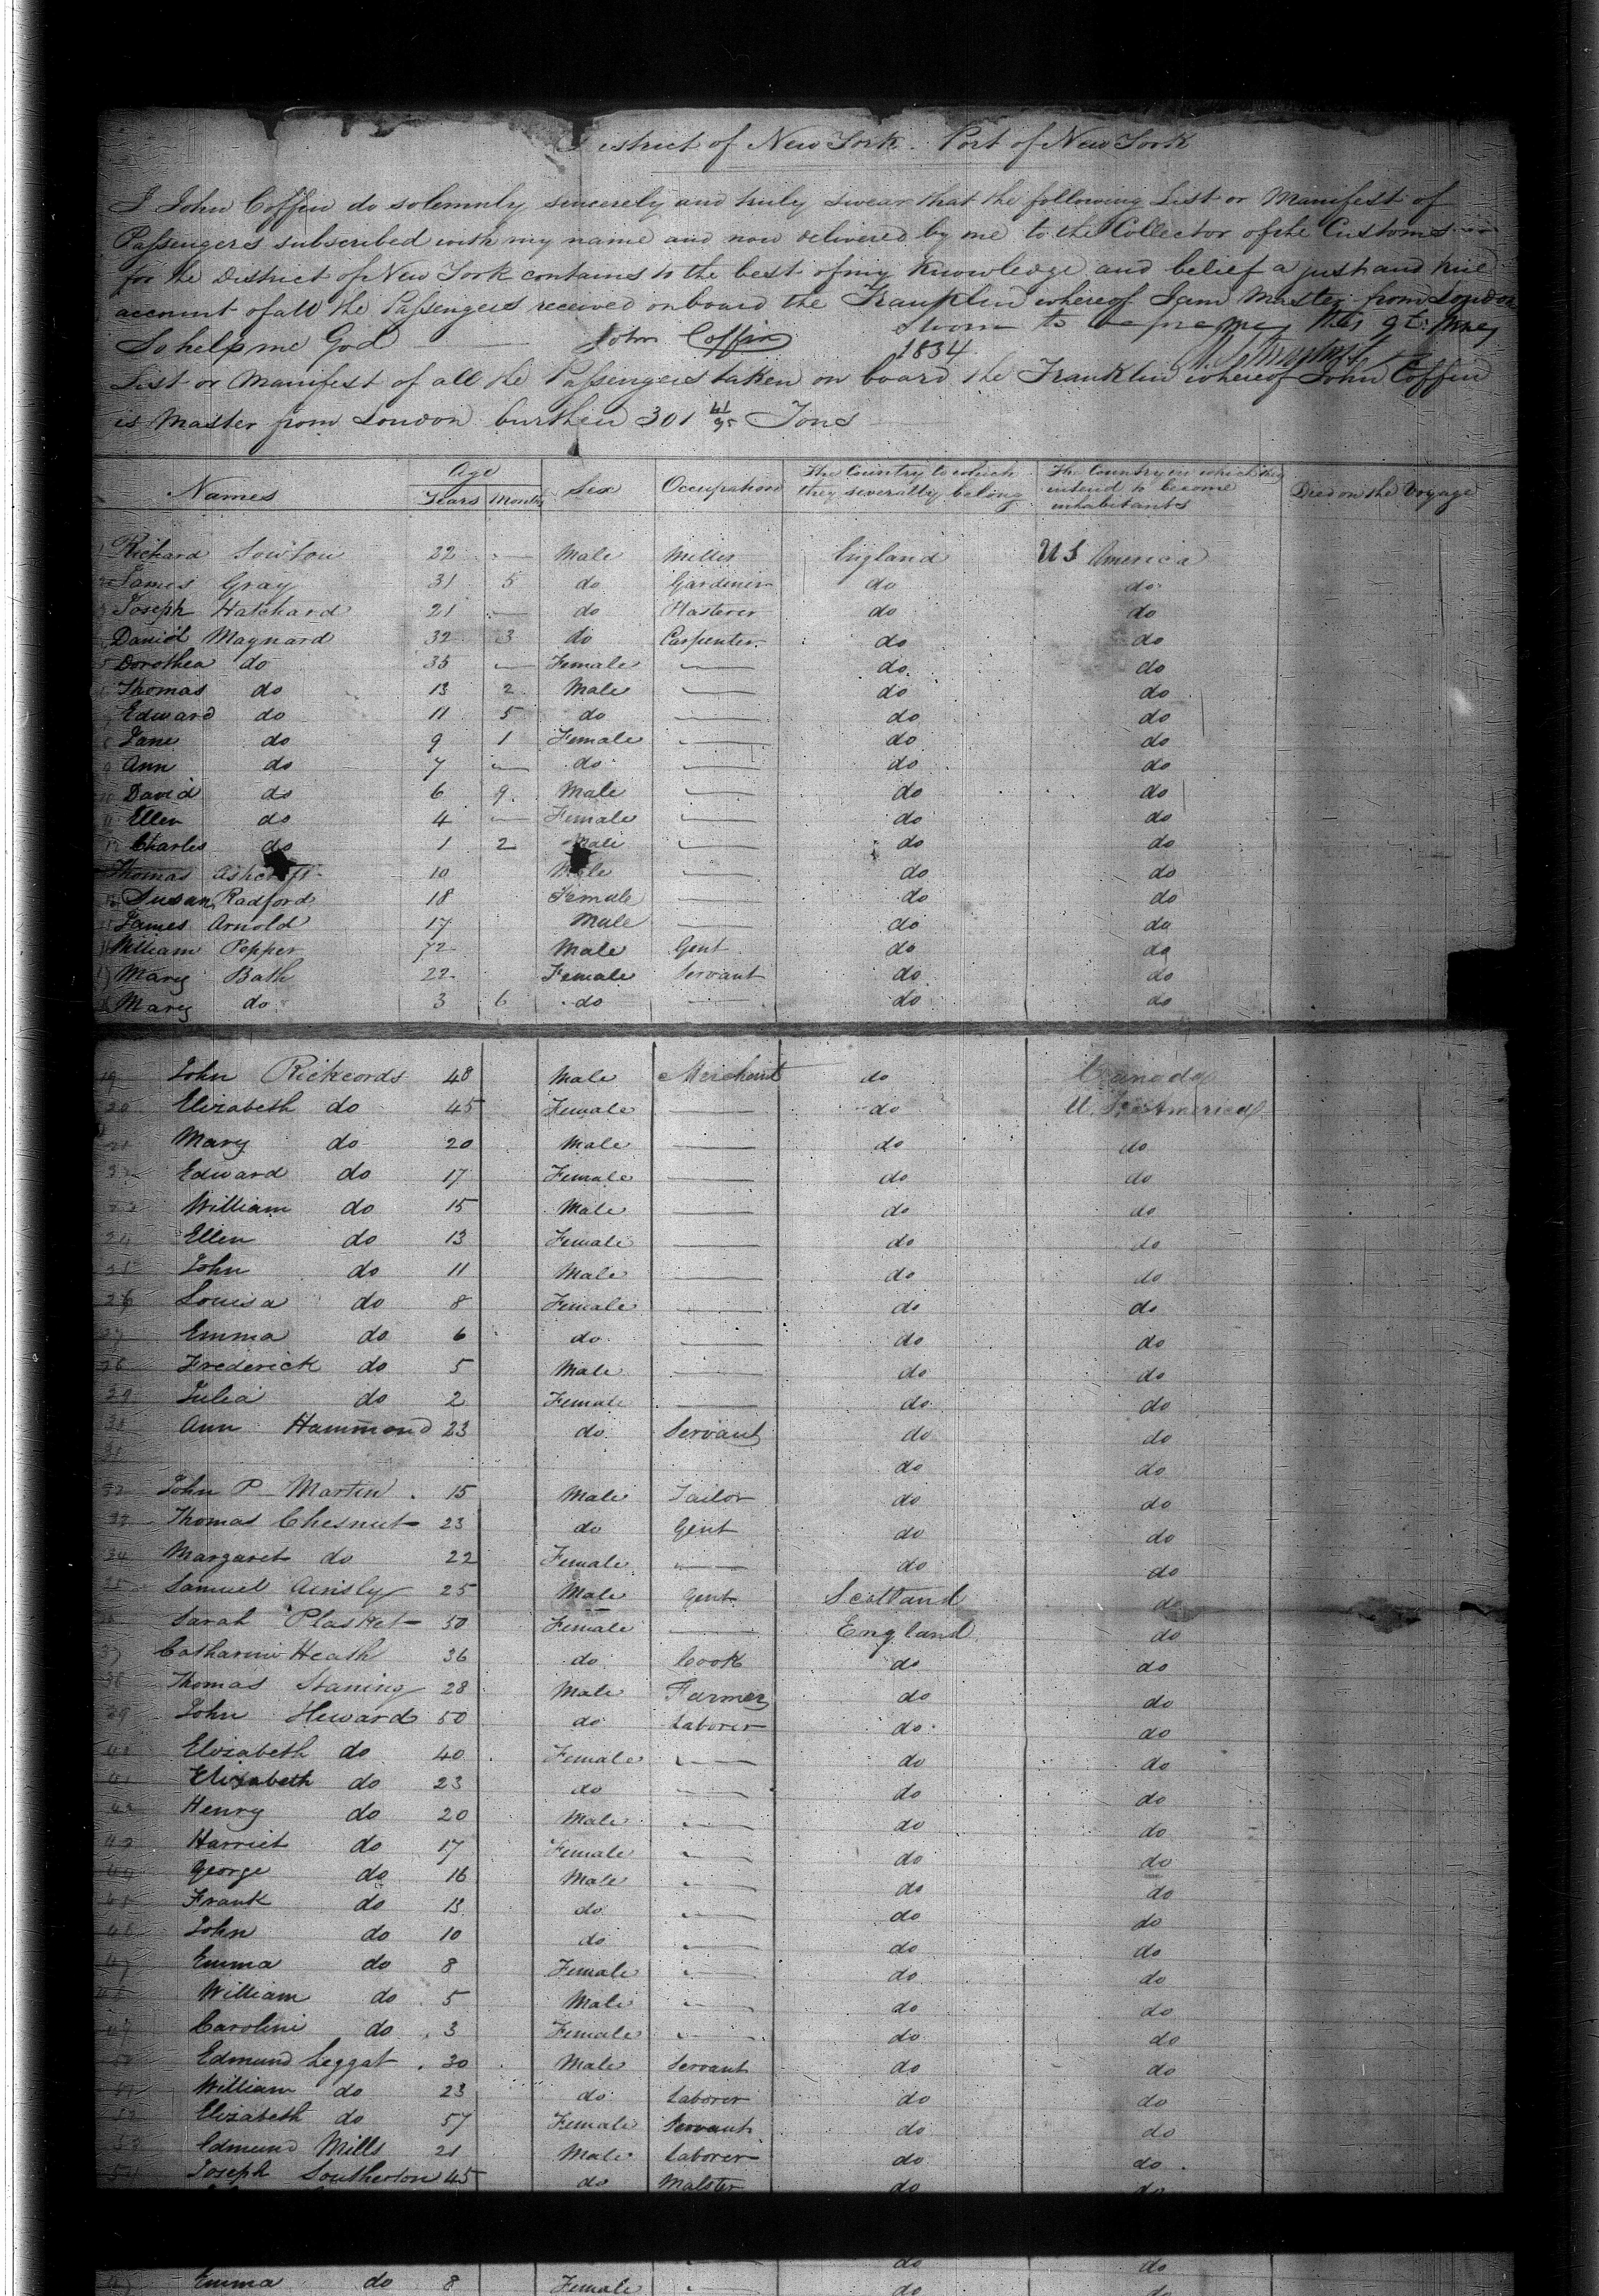 District of New York. Port of New York
I John Coffin do solemnly sincerely and truly swear that the following List or Manifest of
Passengers subscribed with my name and now delivered by me to the Collector of the Customs
for the District of New York contains to the best of my knowledge and belief a just and true
account of all the Passengers received onboard the Franklin whereof I am Master from London
So help me God John Coffin Sworn to before me this 9t June
1834
List or Manifest of all the Passengers taken on board the Franklin whereof John Coffin
is Master from London burthen 301 41/95 Tons
Names Age Years Months Sex Occupation The Country to which they severally belong The Country in which they intend to become inhabitants Died on the Voyage
Richard 22 — Male Miller England US America
James Gray 31 5 do Gardener do do
Joseph Hatchard 21 — do Plasterer do do
Daniel Maynard 32 3 do Carpenter do do
5 Dorothea do 35 — Female — do do
Thomas do 13 2 Male — do do
Edward do 11 5 do — do do
8 Jane do 9 1 Female — do do
9 Ann do 7 — do — do do
10 David do 6 9 Male — do do
11 Ellen do 4 — Female — do do
12 Charles do 1 2 Male — do do
Thomas Ashcroft 10 Male — do do
Susan Radford 18 Female — do do
15 James Arnold 17 Male — do do
16 William Pepper 72 Male Gent do do
17 Mary Bath 22 Female Servant do do
Mary do 3 6 do — do do
19 John Rickcords 48 Male Merchant do Canada
20 Elizabeth do 45 Female — do U. S. America
21 Mary do 20 Male — do do
22 Edward do 17 Female — do do
23 William do 15 Male — do do
24 Ellen do 13 Female — do do
25 John do 11 Male — do do
26 Louisa do 8 Female — do do
27 Emma do 6 do — do do
28 Frederick do 5 Male — do do
29 Julia do 2 Female — do do
30 Ann Hammond 23 do Servant do do
31 do do
32 John P Martin 15 Male Tailor do do
33 Thomas Chesnut 23 do Gent do do
34 Margaret do 22 Female — do do
35 Samuel Ainsly 25 Male Gent Scotland do
Sarah Plasket 50 Female — England do
37 Catharine Heath 36 do Cook do do
38 Thomas Staning 28 Male Farmer do do
39 John Heward 50 do Laborer do do
40 Elizabeth do 40 Female — do do
41 Elizabeth do 23 do — do do
42 Henry do 20 Male — do do
43 Harriet do 17 Female — do do
44 George do 16 Male — do do
45 Frank do 13 do — do do
46 John do 10 do — do do
47 Emma do 8 Female — do do
48 William do 5 Male — do do
49 Caroline do 3 Female — do do
50 Edmund Leggat 30 Male Servant do do
51 William do 23 do Laborer do do
52 Elizabeth do 57 Female Servant do do
53 Edmund Mills 21 Male Laborer do do
54 Joseph Southerton 45 do Malster do do
do do
47 Emma do 8 Female — do do